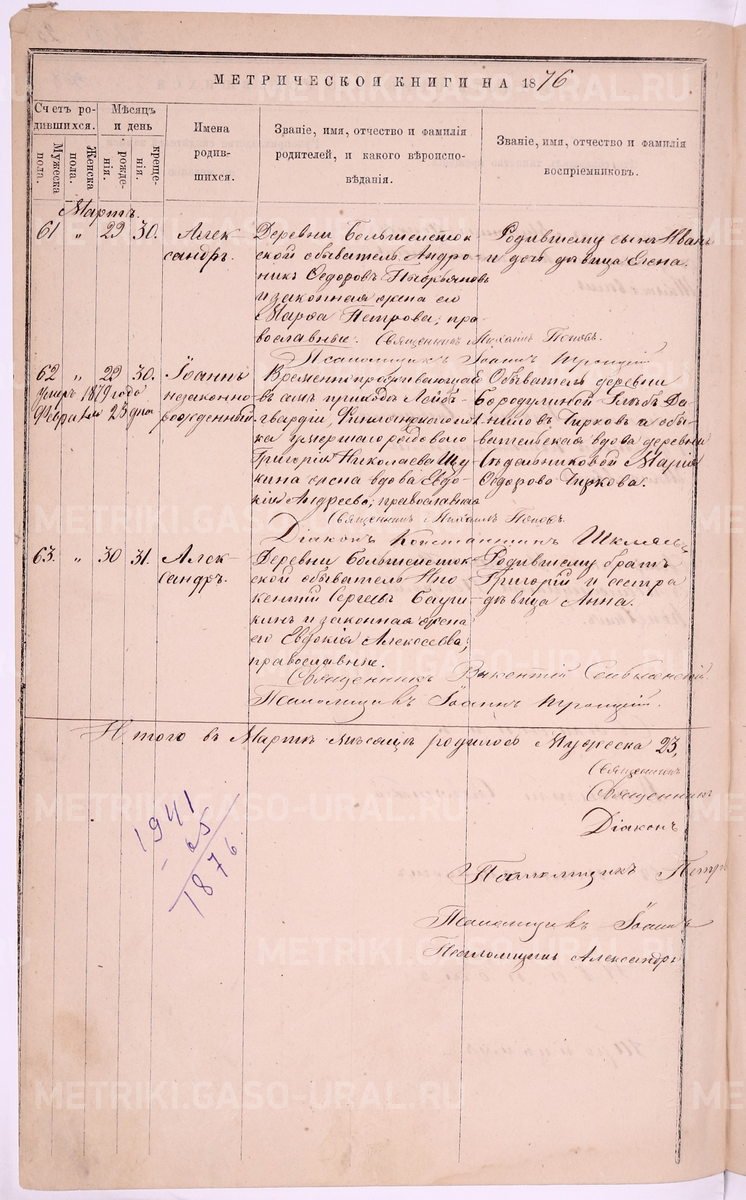 МЕТРИЧЕСКОЙ КНИГИ НА 1876
Счетъ родившихся.
Мужеска пола.
Женска пола.
Мѣсяцъ и день
рожденія.
крещенія.
Имена родившихся.
Званіе, имя, отчество и фамилія родителей, и какого вѣроисповѣданія.
Званіе, имя, отчество и фамилія воспріемниковъ.
Мартъ.
61 „ 29 30. Александръ.
Деревни
ской обыватель Андро
никъ Ѳедоровъ
и законная жена его
Марѳа Петрова; пра
вославные. Священникъ Михаилъ Поповъ.
Псаломщикъ Іоаннъ
Родившему сынъ Иванъ
и дочь дѣвица Елена.
62 „ 29 30. Іоаннъ
незаконно
рожденный.
1879 года
23 дня
Временно проживающая
въ семъ приходѣ Лейбъ
гвардіи, Финляндскаго пол
ка умершаго рядоваго
Григорія Николаева Щу
кина жена вдова Евдо
кія Андреева; православная
Священникъ Михаилъ Поповъ.
Діаконъ Константинъ
Обыватель деревни
Бородулиной Глѣбъ Да
ниловъ Чирковъ и обы
вательская вдова деревни
Марія
Ѳедорова Чиркова.
63. „ 30 31. Алек-
сандръ.
Деревни
ской обыватель Ино
кентій Сергѣевъ
и законная жена
его Евдокія Алексѣева;
православные.
Священникъ Викентій
Псаломщикъ Іоаннъ
Родившему братъ
Григорій и сестра
дѣвица Анна.
Итого въ Мартѣ мѣсяцѣ родилось Мужеска 23,
Священникъ
Священникъ
Діаконъ
Псаломщикъ Петръ
Псаломщикъ Іоаннъ
Псаломщикъ Александръ
1941
- 65
1876
METRIKI.GASO-URAL.RU